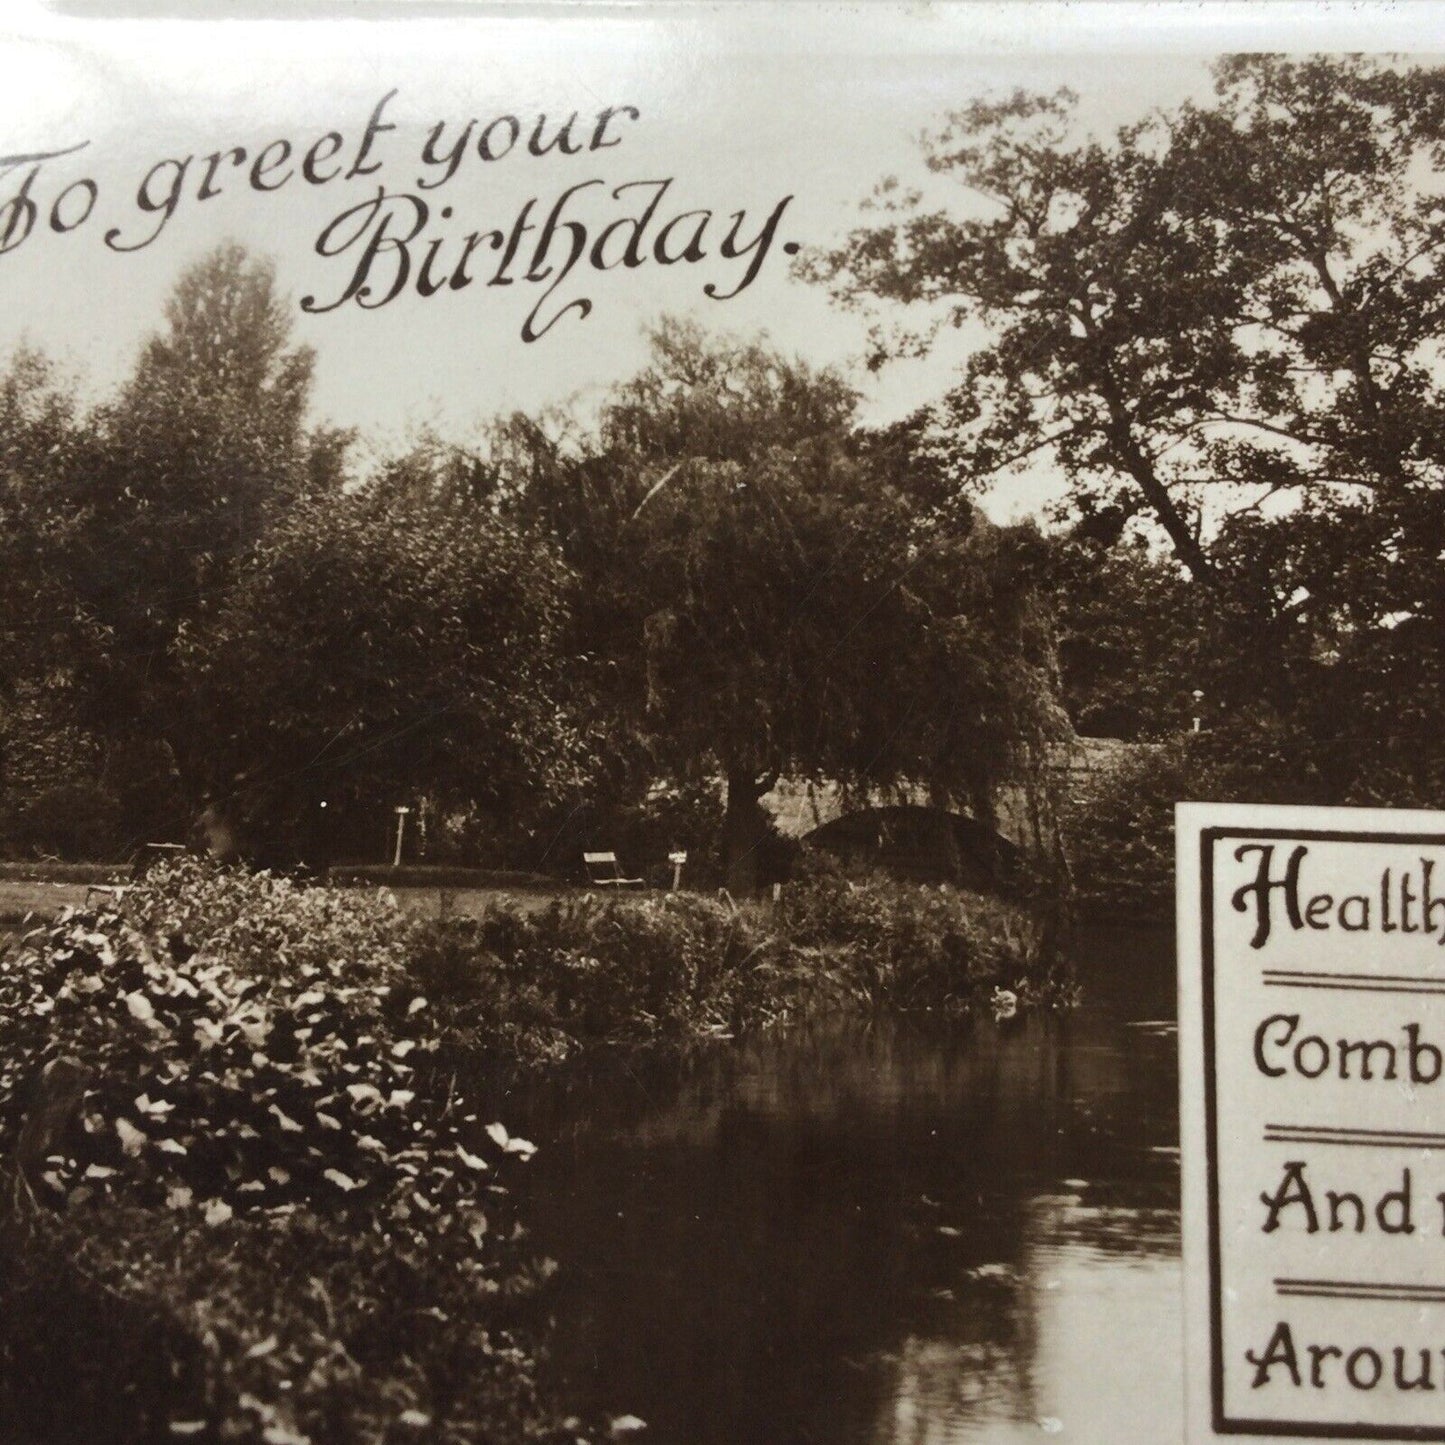 To greet your
Birthday.
Health
Comb
And
Arou